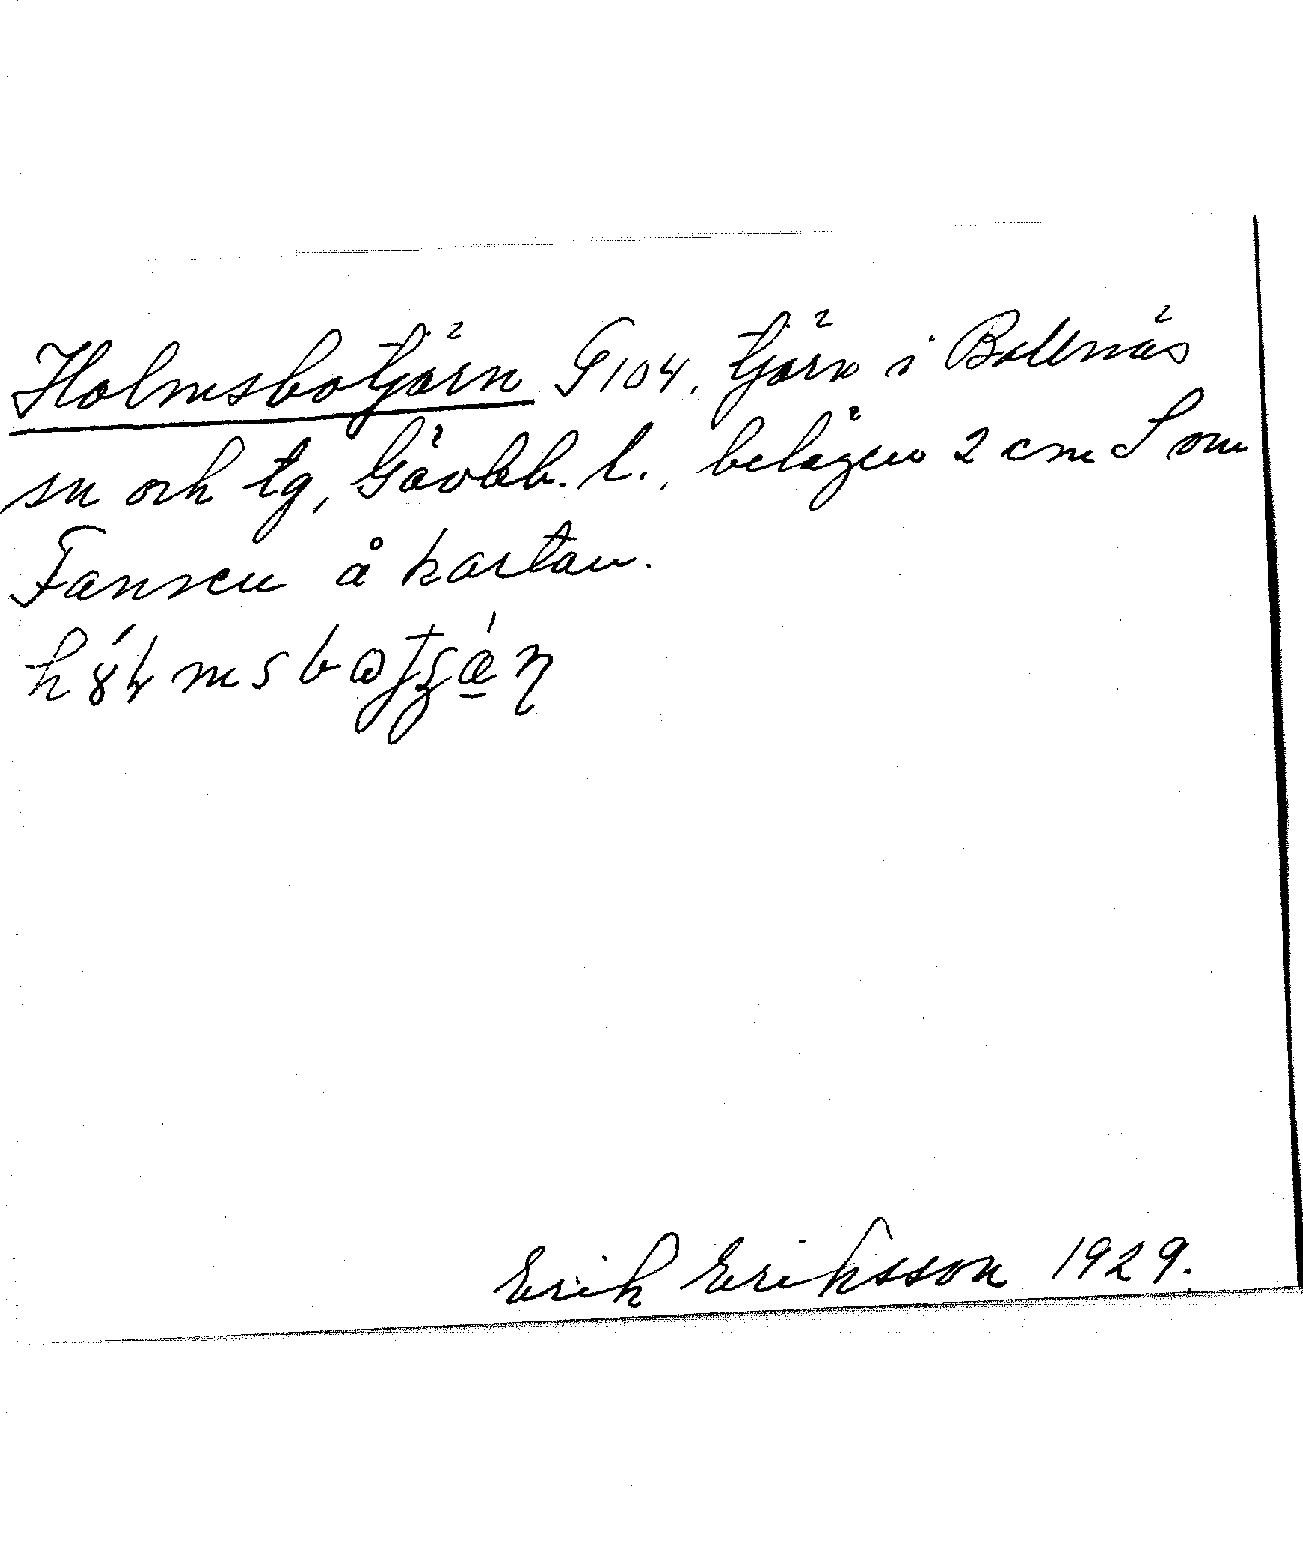 Holmsbotjärn G104, tjärn i Bollnäs
sn och tg, Gävleb. l., belägen 2 cm S om
Fansen å kartan.
Erik Eriksson 1929.